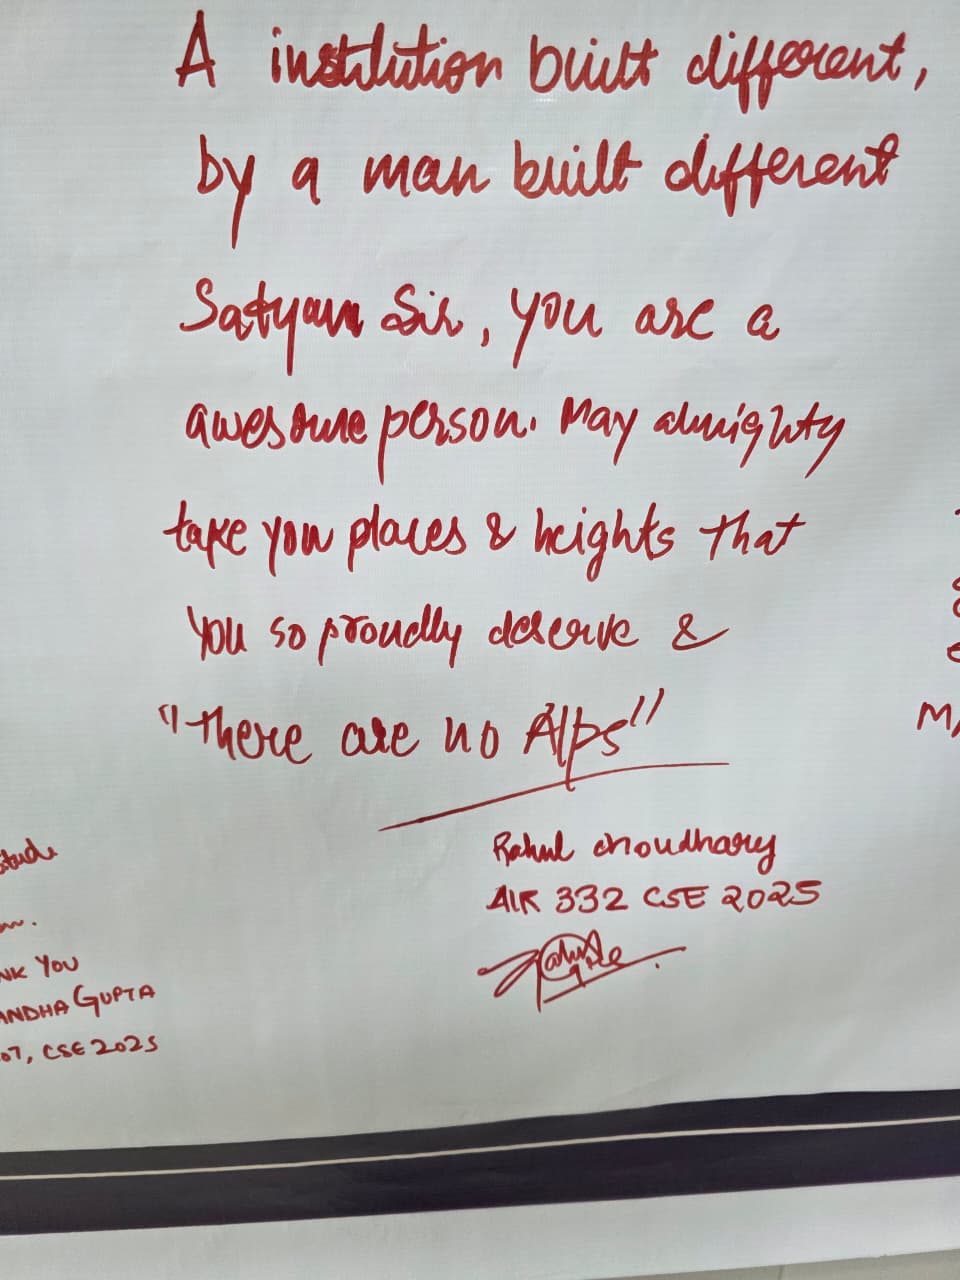 A institution built different,
by a man built different
Satyam Sir, you are a
awesome person. May almighty
take you places & heights that
you so proudly deserve &
"There are no Alps"
Rahul Choudhary
AIR 332 CSE 2025
NK YOU
ANDHA GUPTA
07, CSE 2025
M